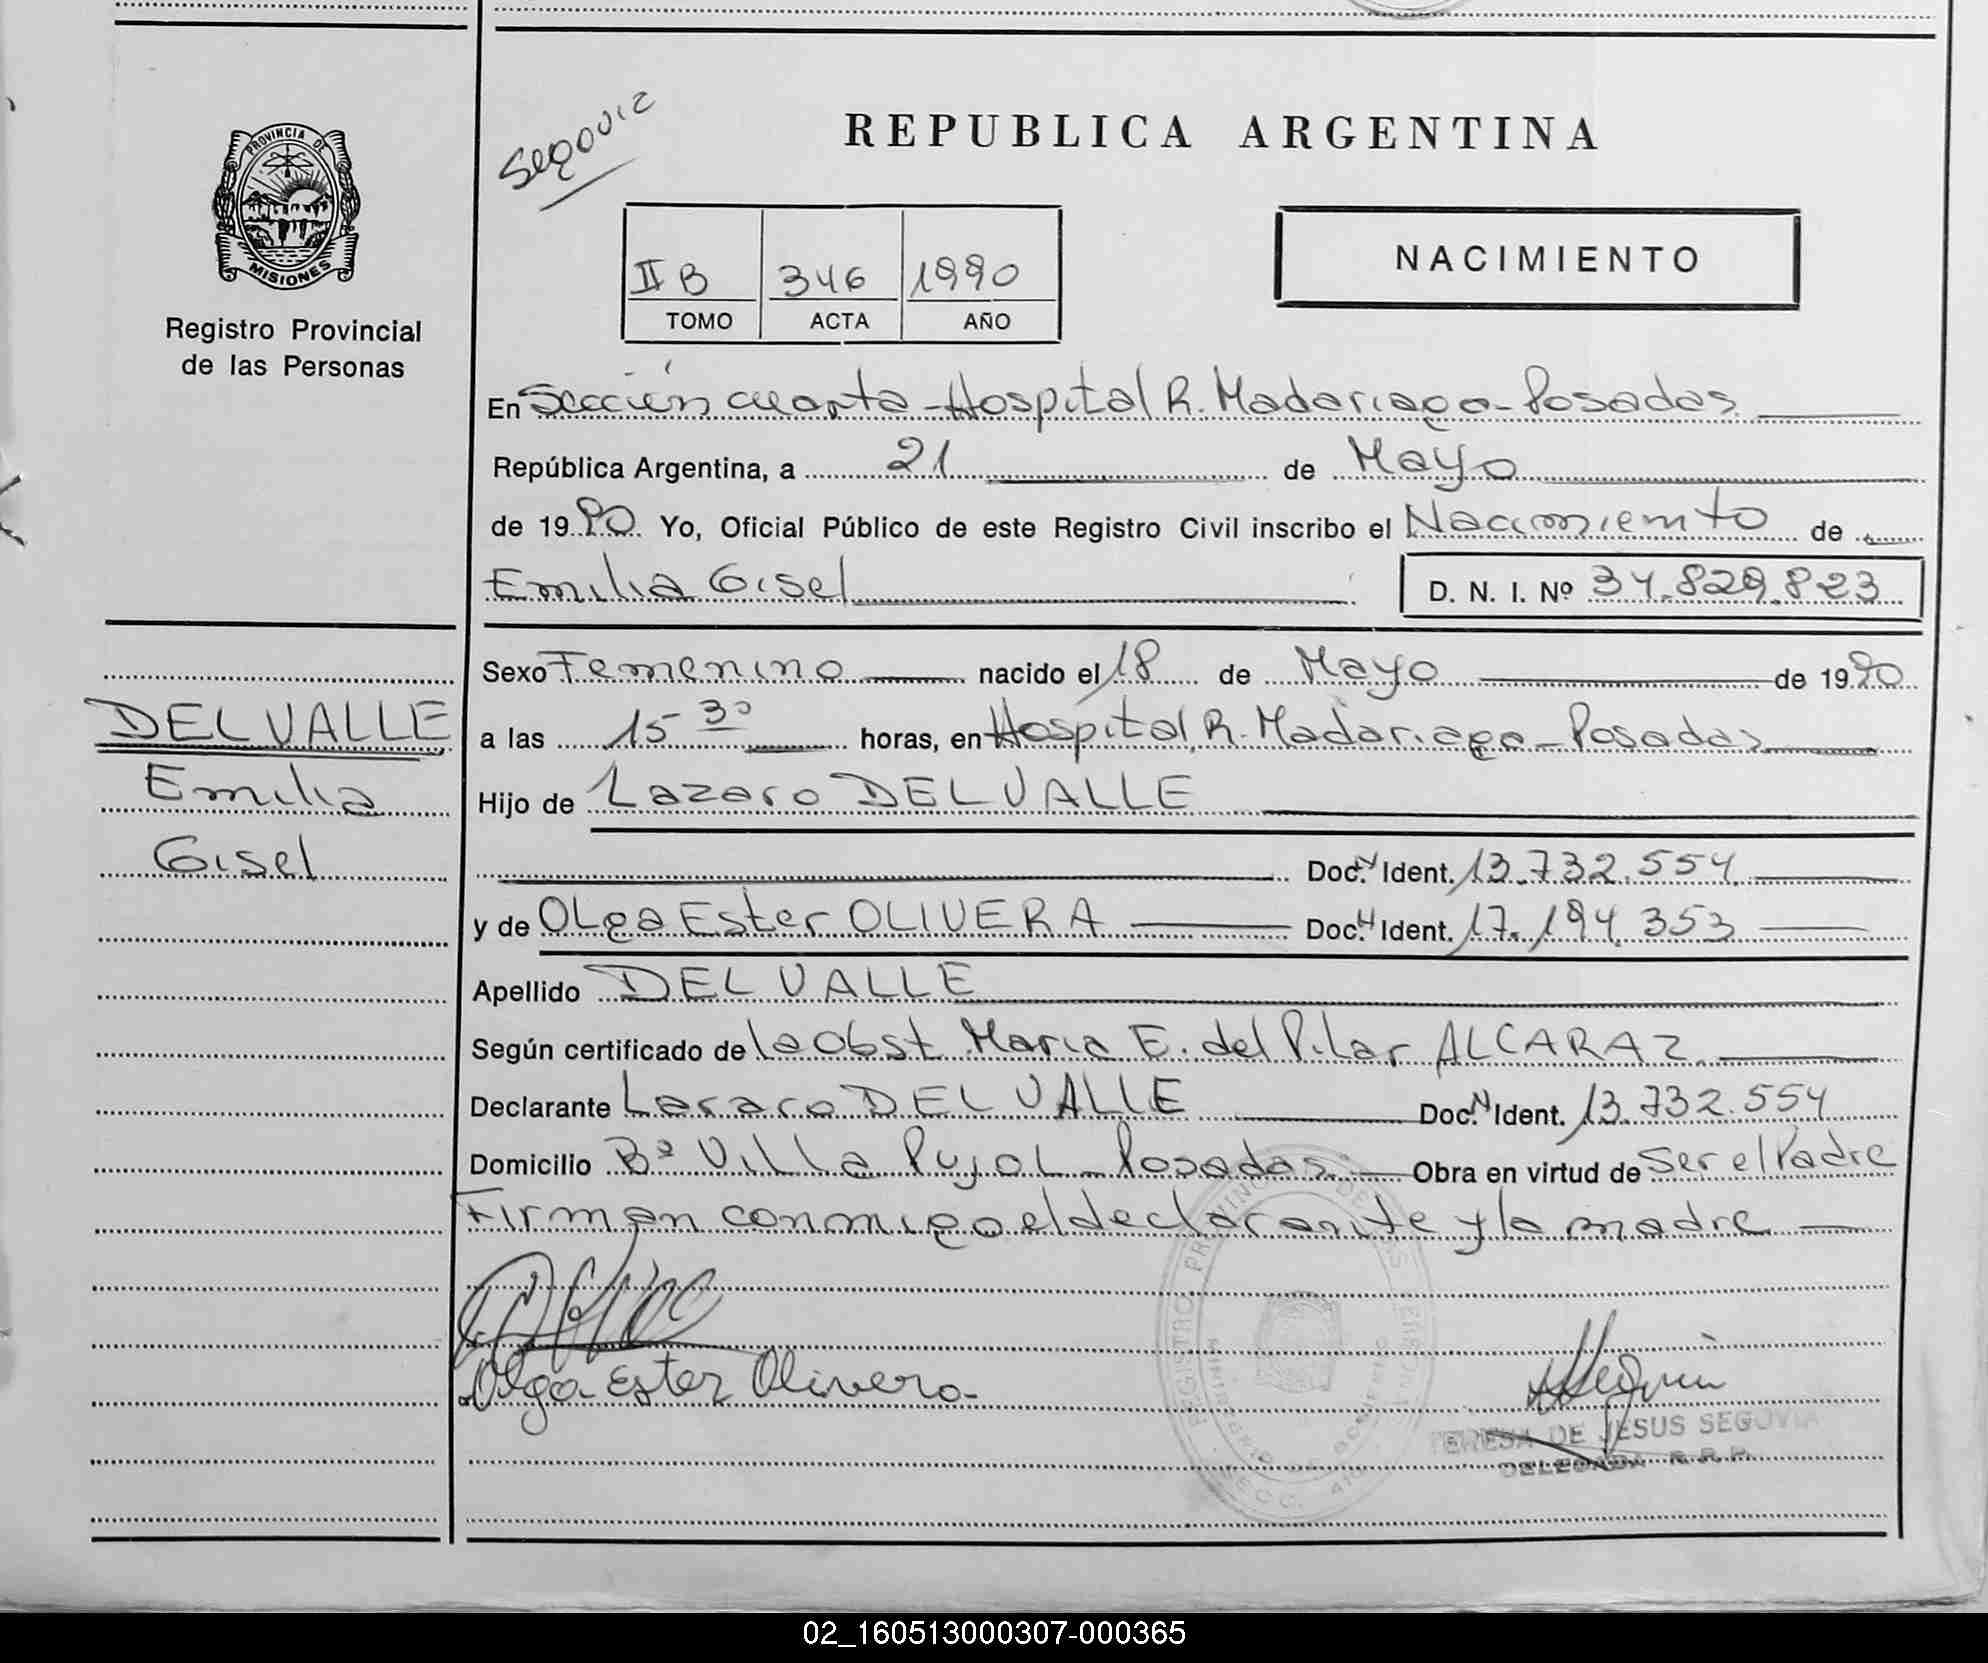 Segovia
REPUBLICA ARGENTINA
PROVINCIA DE
MISIONES
Registro Provincial
de las Personas
II B 346 1990
TOMO ACTA AÑO
NACIMIENTO
En Sección cuarta - Hospital R. Madariaga - Posadas
República Argentina, a 21 de Mayo
de 1990 Yo, Oficial Público de este Registro Civil inscribo el Nacimiento de
Emilia Gisel D. N. I. Nº 34.829.823
Sexo Femenino nacido el 18 de Mayo de 1990
DELVALLE
a las 15 30 horas, en Hospital R. Madariaga - Posadas
Emilia
Hijo de Lazaro DELVALLE
Gisel
Doc. N Ident. 13.732.554
y de Olga Ester OLIVERA Doc. N Ident. 17.194.353
Apellido DELVALLE
Según certificado de la Obst Maria E. del Pilar ALCARAZ
Declarante Lazaro DELVALLE Doc. N Ident. 13.732.554
Domicilio Bº Villa Pujol - Posadas Obra en virtud de Ser el Padre
Firman conmigo el declarante y la madre
Olga Ester Olivera
TERESA DE JESUS SEGOVIA
DELEGADA R.R.P.
02_160513000307-000365